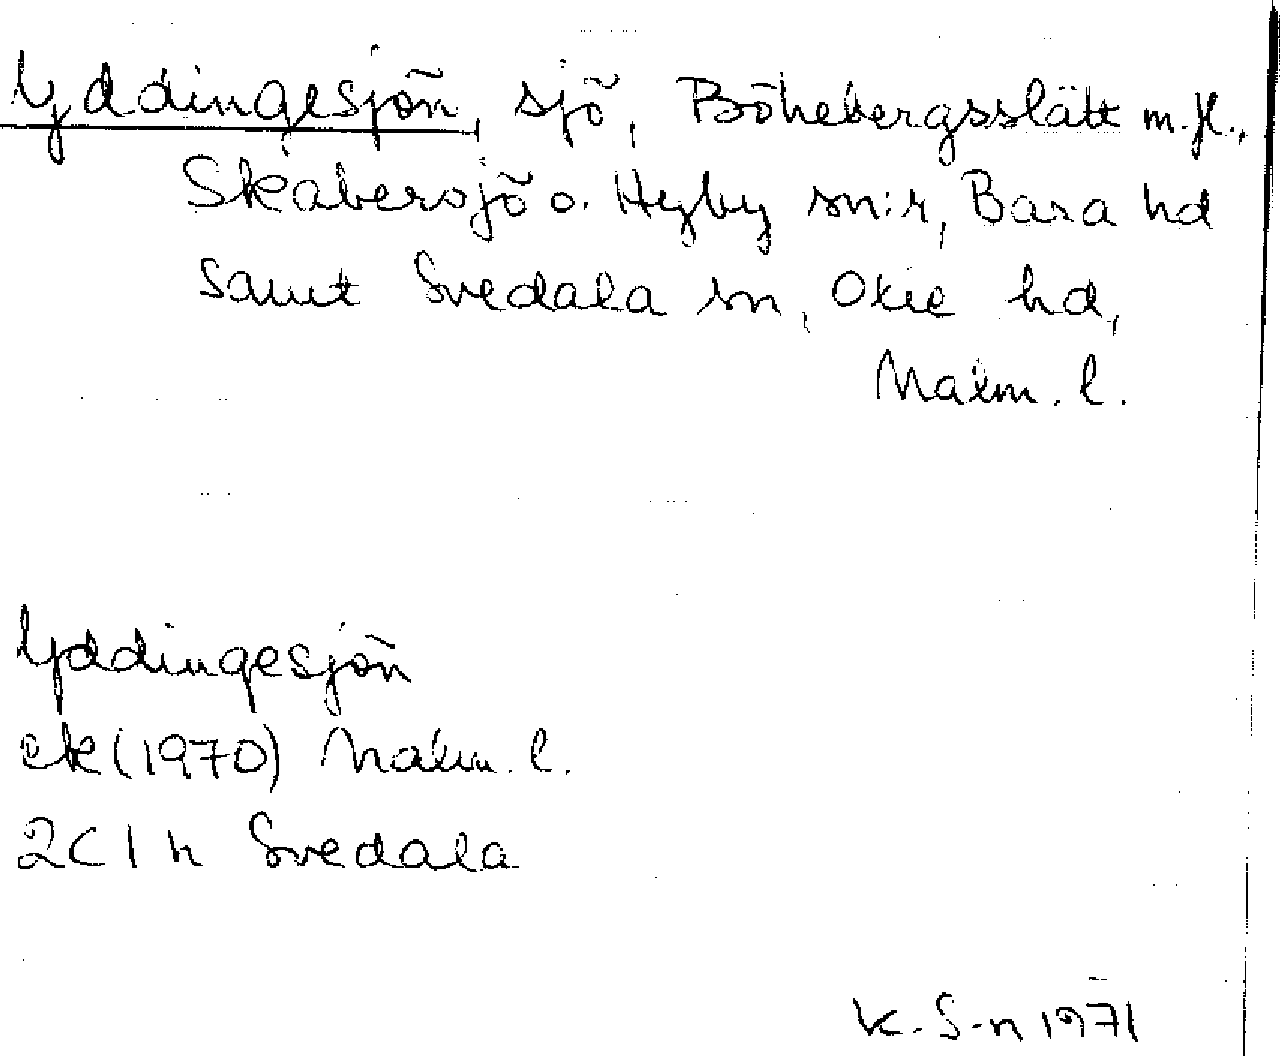 Yddingesjön, sjö, Bökebergsslätt m.fl.,
Skabersjö o. Hyby sn:r, Bara hd
samt Svedala sn, Oxie hd,
Malm. l.
Yddingesjön
ek (1970) Malm. l.
2C 1 h Svedala
K. S-n 1971